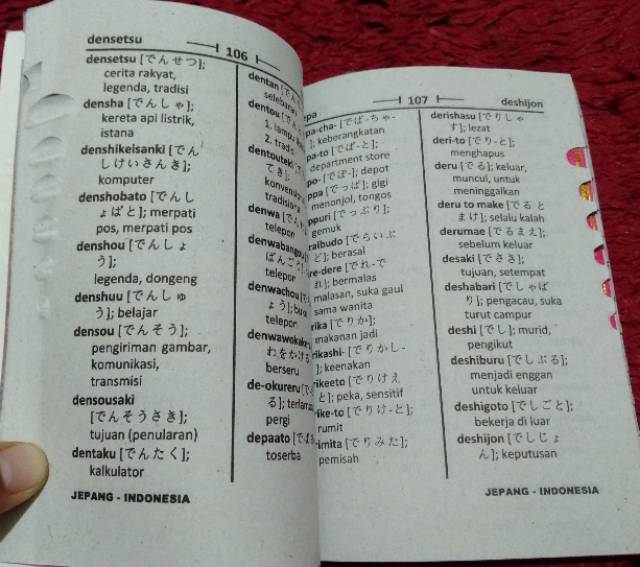 densetsu
106
densetsu [でんせつ];
cerita rakyat,
legenda, tradisi
densha [でんしゃ];
kereta api listrik,
istana
denshikeisanki [でん
しけいさんき];
komputer
denshobato [でんし
ょばと]; merpati
pos, merpati pos
denshou [でんしょ
う];
legenda, dongeng
denshuu [でんしゅ
う]; belajar
densou [でんそう];
pengiriman gambar,
komunikasi,
transmisi
densousaki
[でんそうさき];
tujuan (penularan)
dentaku [でんたく];
kalkulator
dentan
dentou
denwa
telepon
telepon
telepon
berseru
de-okureru
pergi
depaato
toserba
JEPANG - INDONESIA
107
deshijon
[でぱ-ちゃ-
]; keberangkatan
department store
depot
[でっぱ]; gigi
menonjol, tongos
[でっぷり];
gemuk
[でらいぶ
berasal
[でれ-で
れ]; bermalas
malasan, suka gaul
sama wanita
[でりか];
makanan jadi
[でりかし-
]; keenakan
[でりけえ
と]; peka, sensitif
[でりけ-と];
rumit
[でりみた];
pemisah
derishasu [でりしゃ
す]; lezat
deri-to [でり-と];
menghapus
deru [でる]; keluar,
muncul, untuk
meninggalkan
deru to make [でると
まけ]; selalu kalah
derumae [でるまえ];
sebelum keluar
desaki [でさき];
tujuan, setempat
deshabari [でしゃば
り]; pengacau, suka
turut campur
deshi [でし]; murid,
pengikut
deshiburu [でしぶる];
menjadi enggan
untuk keluar
deshigoto [でしごと];
bekerja di luar
deshijon [でしじょ
ん]; keputusan
JEPANG - INDONESIA